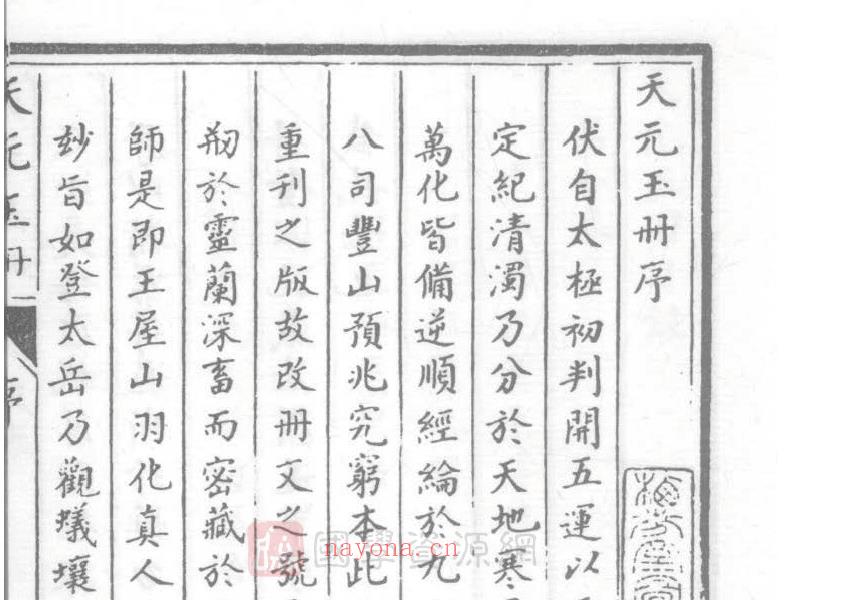 天元玉冊序
伏自太極初判開五運以
定紀清濁乃分於天地寒
萬化皆備逆順經綸於九
八司豐山預兆究窮本此
重刊之版故改冊文之號
刱於靈蘭深畜而密藏於
師是即王屋山羽化真人
妙旨如登太岳乃觀蟻壤
天元玉冊一
序
國學資源網
nayona.cn